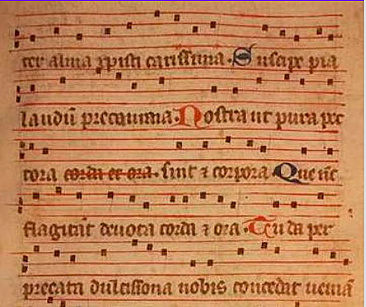 ter alma xpisti carissima. Suscipe pia
laudū precamina. Nostra ut pura pec
tora corda et ora. sint et corpora. Que nc
flagitāt devota corda et ora. Tu da per
precata dulcissona nobis concedas veniā